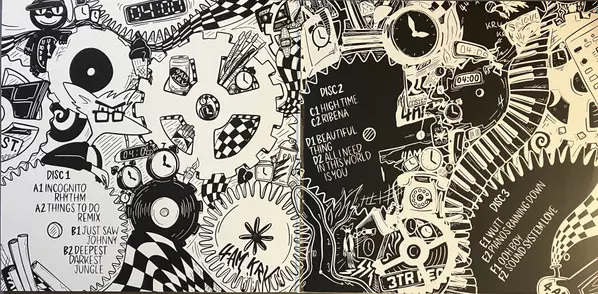 04:00
ST.
DISC 1
A1 INCOGNITO
RHYTHM
A2 THINGS TO DO
REMIX
B1 JUST SAW
JOHNNY
B2 DEEPEST
DARKEST
JUNGLE
4AM KRU
DISC 2
C1 HIGH TIME
C2 RIBENA
D1 BEAUTIFUL
THING
D2 ALL I NEED
IN THIS WORLD
IS YOU
04:00
DISC 3
E1 NUTT
E2 PIANO'S RAINING DOWN
F1 OOH BOY
F2 SOUND SYSTEM LOVE